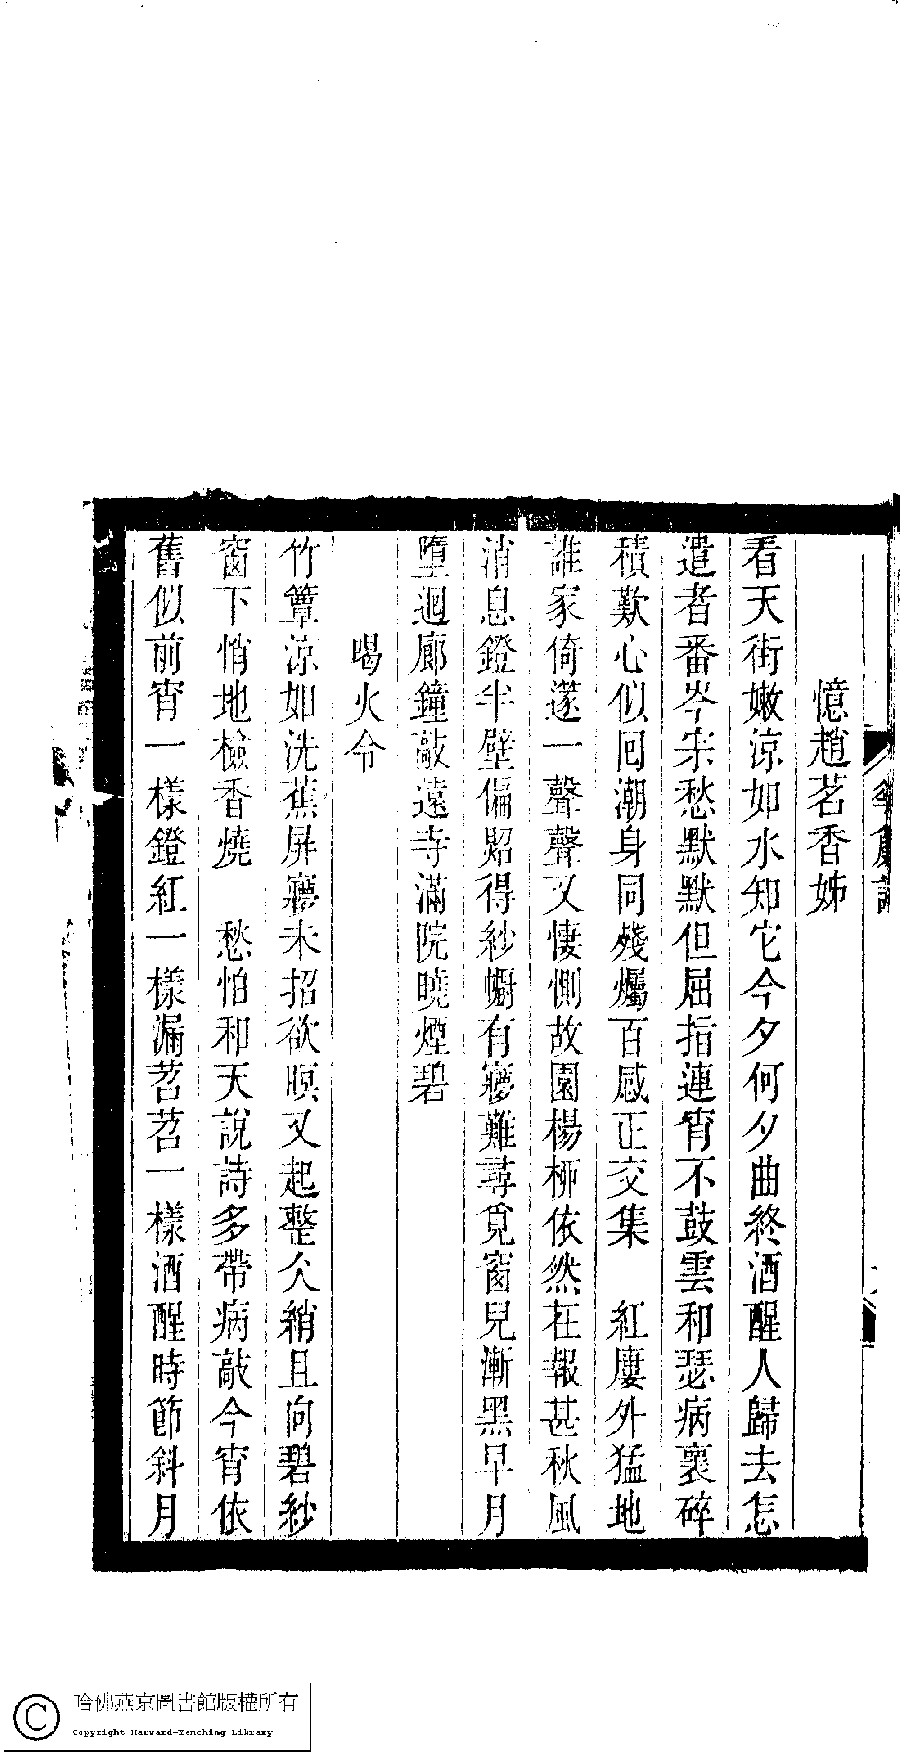 憶趙茗香姊
看天街嫩涼如水知它今夕何夕曲終酒醒人歸去怎
遣者番岑宋愁默默但屈指連宵不鼓雲和瑟病裏碎
積歎心似回潮身同殘爥百感正交集　紅廔外猛地
誰家倚邃一聲聲又悽惻故園楊柳依然在報甚秋風
消息鐙半壁偏照得紗幮有㝱難尋覓窗兒漸黑早月
墮迴廊鐘敲遠寺滿院曉煙碧
喝火令
竹簟涼如洗蕉屏㝱未招欲暝又起整仌綃且向碧紗
窗下悄地檢香燒　愁怕和天說詩多帶病敲今宵依
舊似前宵一樣鐙紅一樣漏苕苕一樣酒醒時節斜月
哈佛燕京圖書館版權所有
Copyright Harvard-Yenching Library